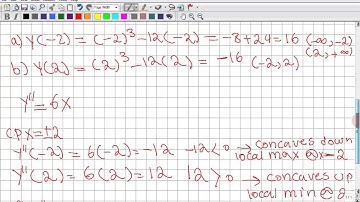 a) Y(-2) = (-2)³ - 12(-2) = -8 + 24 = 16 (-∞, -2)
(2, +∞)
b) Y(2) = (2)³ - 12(2) = -16 (-2, 2)
Y'' = 6x
C.P. x = ±2
Y''(-2) = 6(-2) = -12 -12 < 0 → concaves down
local max @ x = -2
Y''(2) = 6(2) = 12 12 > 0 → concaves up
local min @ 2